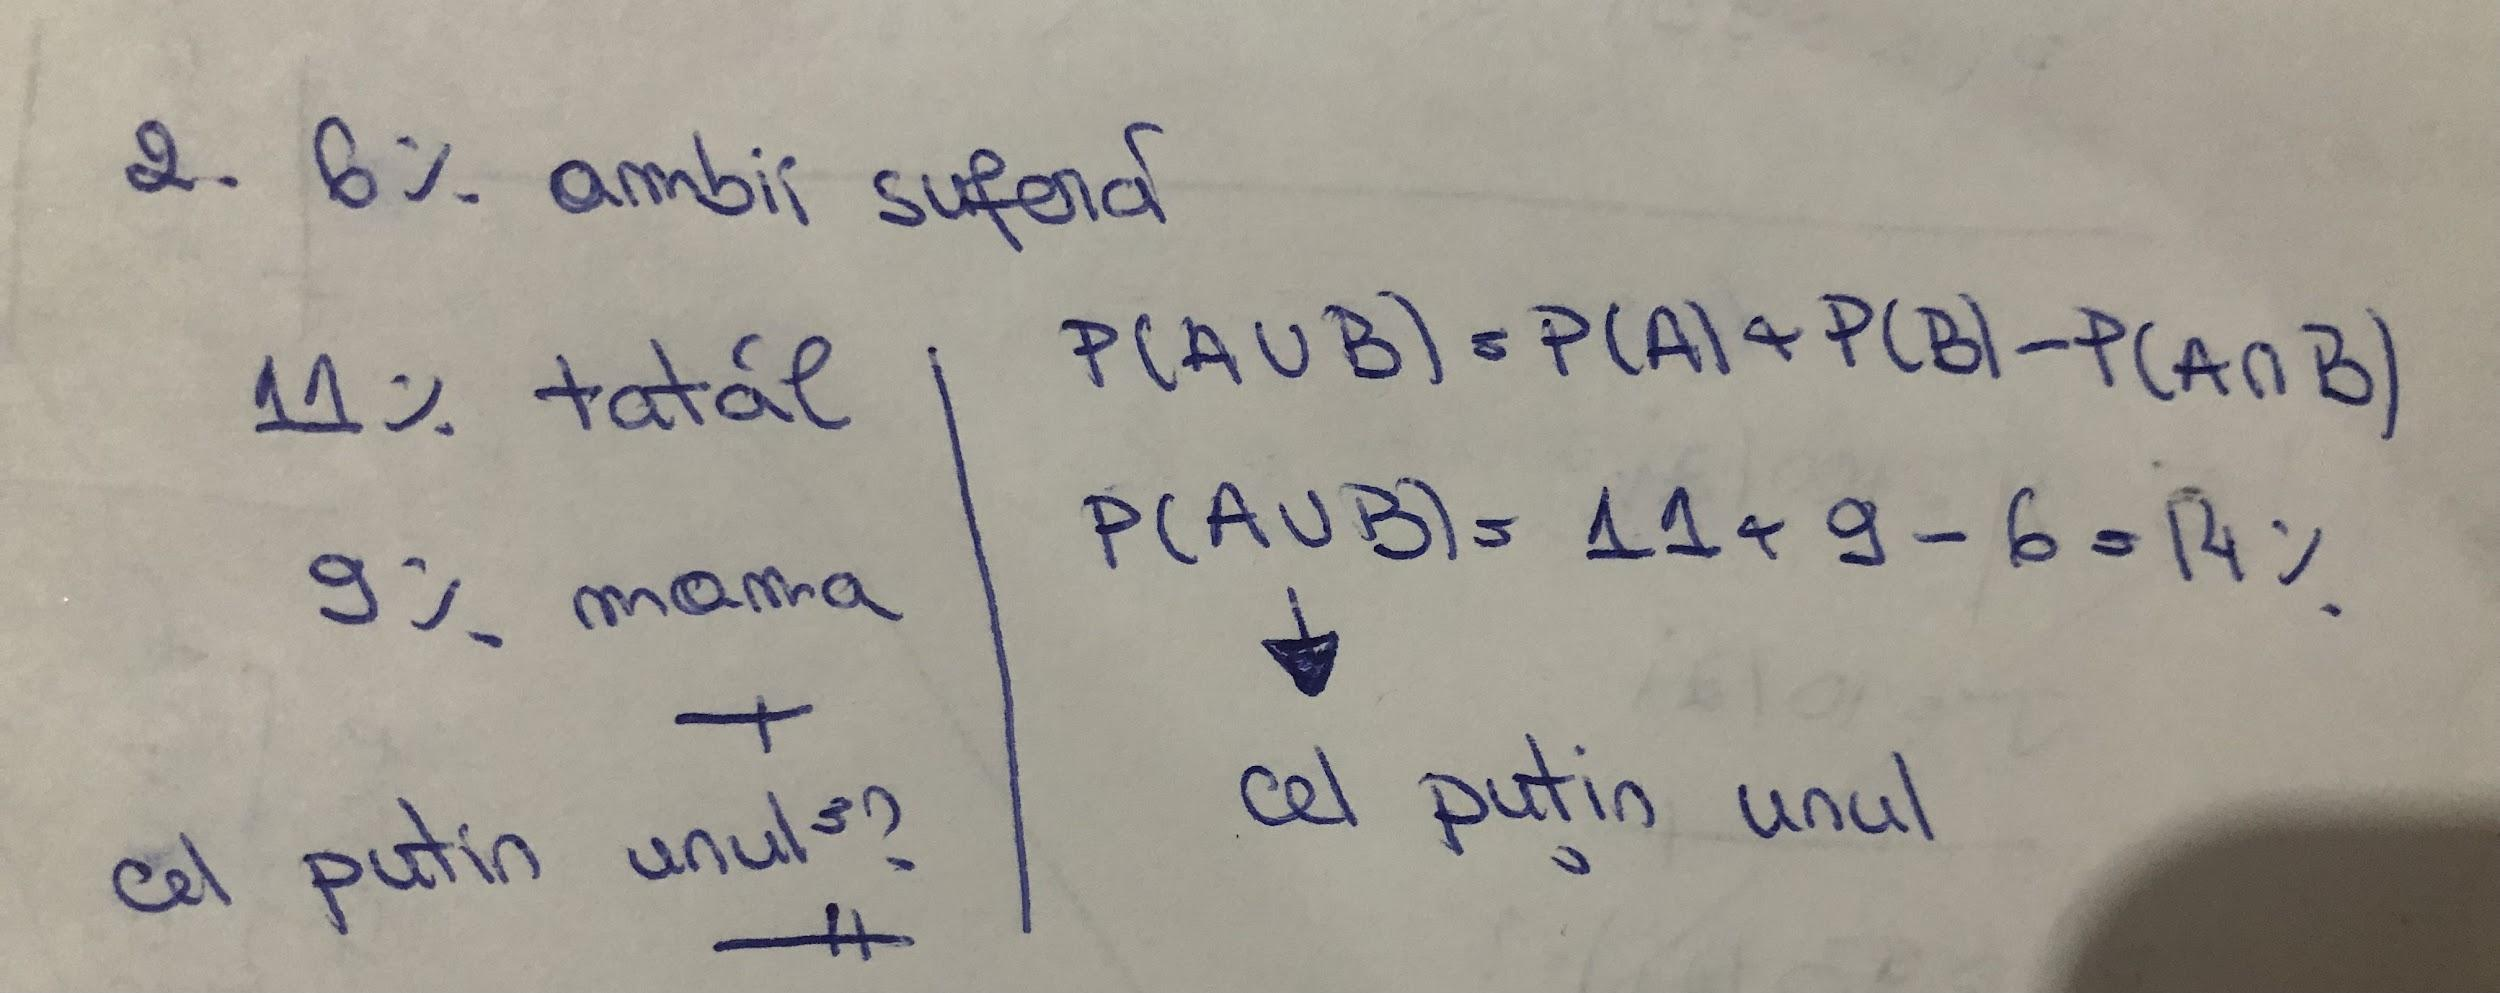 2. 6% ambii suferă
11% tatăl
9% mama
cel putin unul=?
P(A∪B)=P(A)+P(B)-P(A∩B)
P(A∪B)= 11+9-6=14%
cel puțin unul